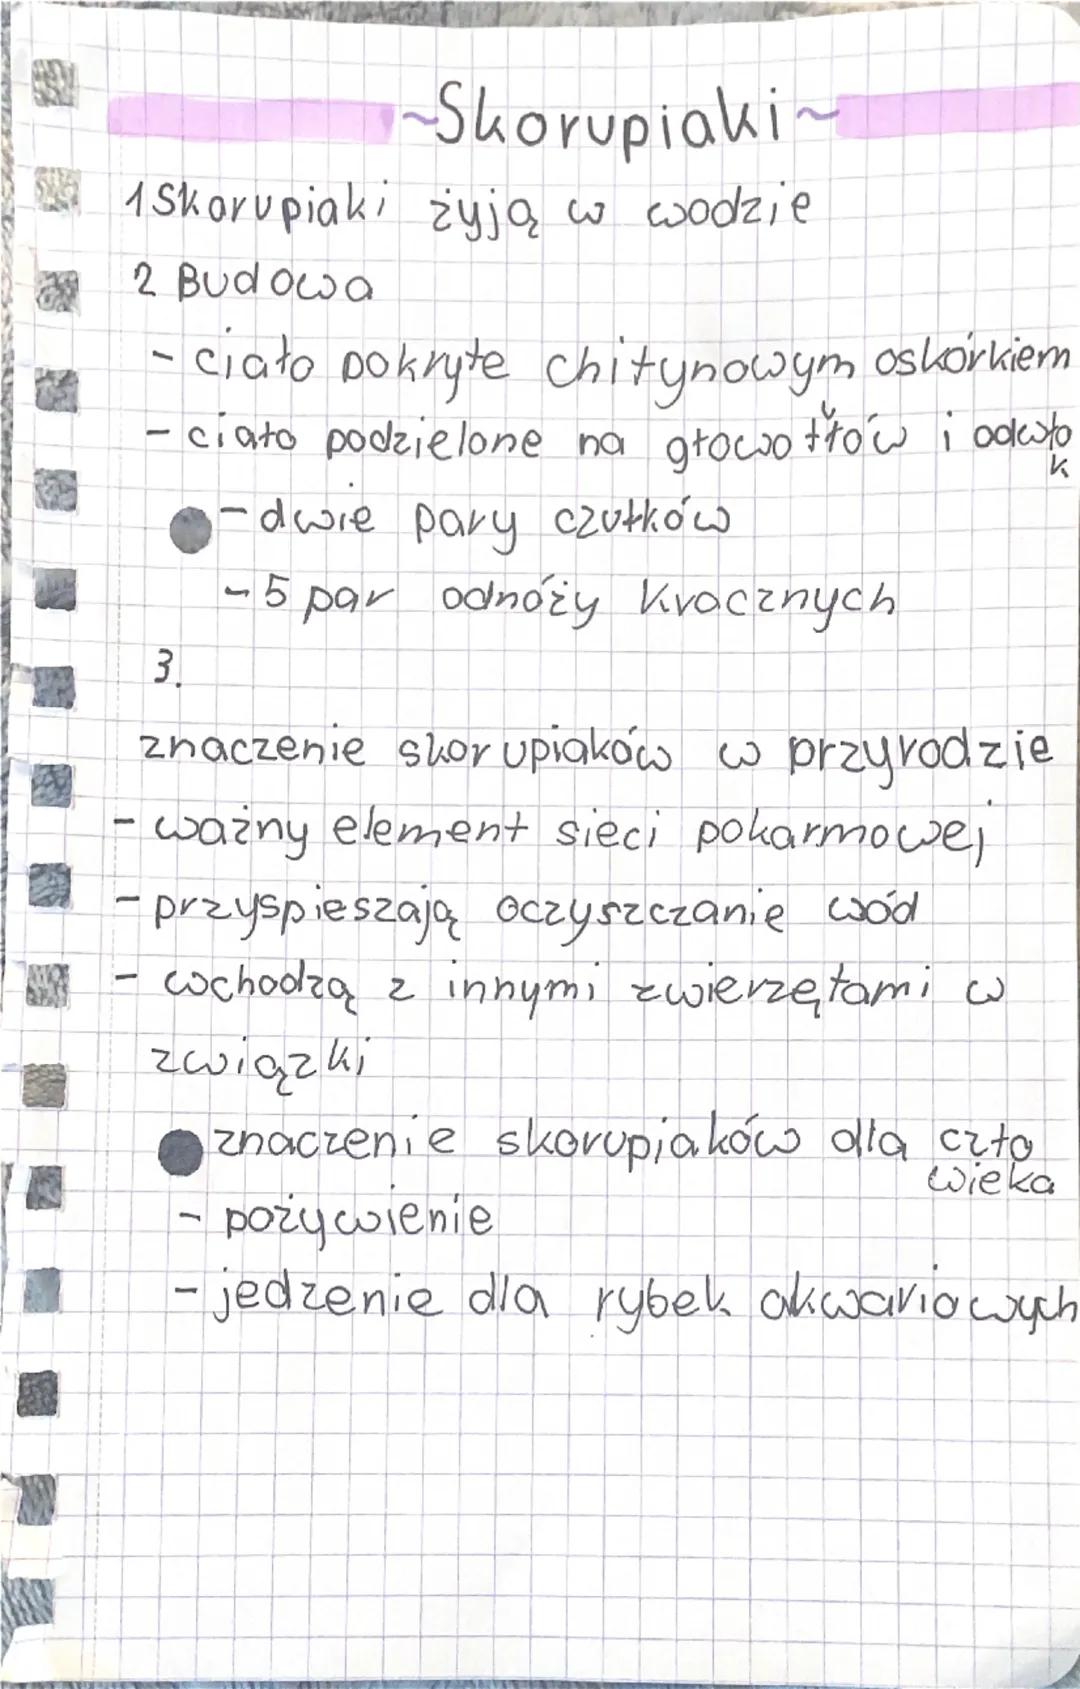 ~Skorupiaki~
1 Skorupiaki żyją w wodzie
2 Budowa
- ciało pokryte chitynowym oskórkiem
- ciało podzielone na głowotłów i odwłok
- dwie pary czułków
- 5 par odnóży krocznych
3.
znaczenie skorupiaków w przyrodzie
- ważny element sieci pokarmowej
- przyspieszają oczyszczanie wód
- wchodzą z innymi zwierzętami w
związki
znaczenie skorupiaków dla czło
wieka
- pożywienie
- jedzenie dla rybek akwariowych